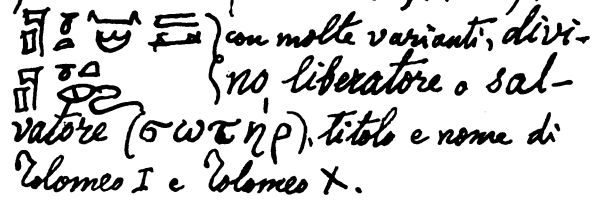 con molte varianti, divi-
no liberatore o sal-
vatore (σωτήρ), titolo e nome di
Tolomeo I e Tolomeo X.